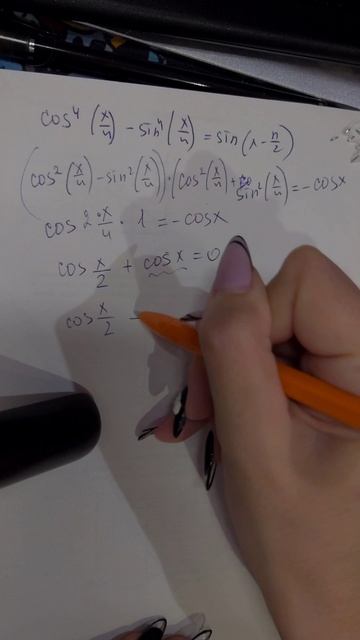 cos⁴(x/4) - sin⁴(x/4) = sin(x - π/2)
(cos²(x/4) - sin²(x/4)) · (cos²(x/4) + sin²(x/4)) = - cosx
cos 2·x/4 · 1 = - cosx
cos x/2 + cos x = 0
cos x/2 -